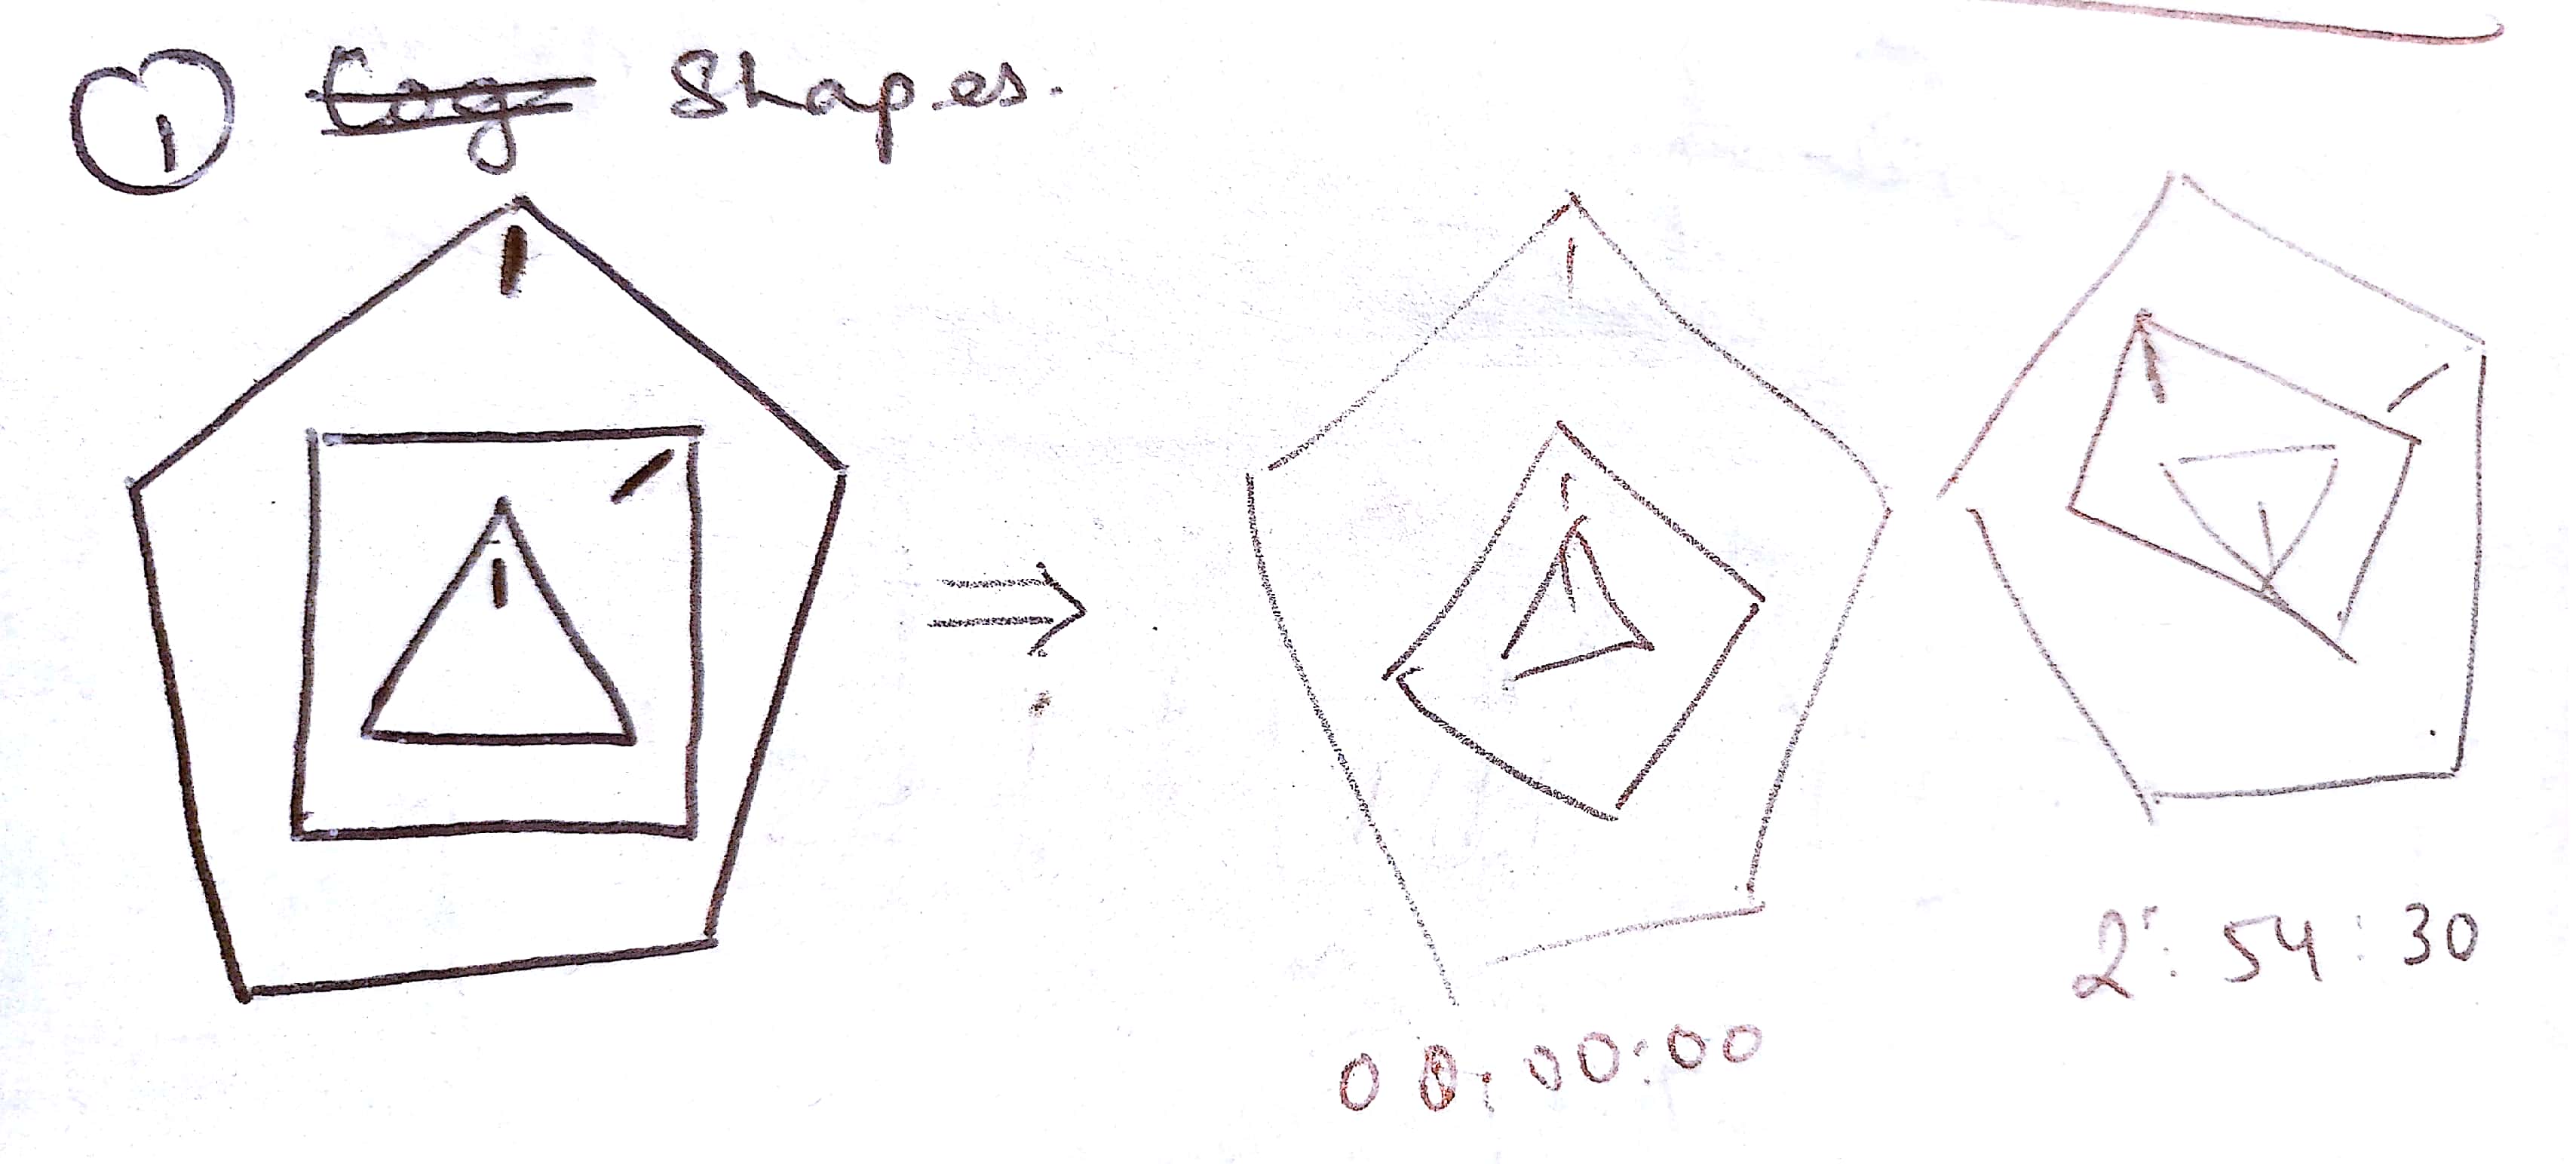 1 Cog Shapes.
00:00:00
2:54:30